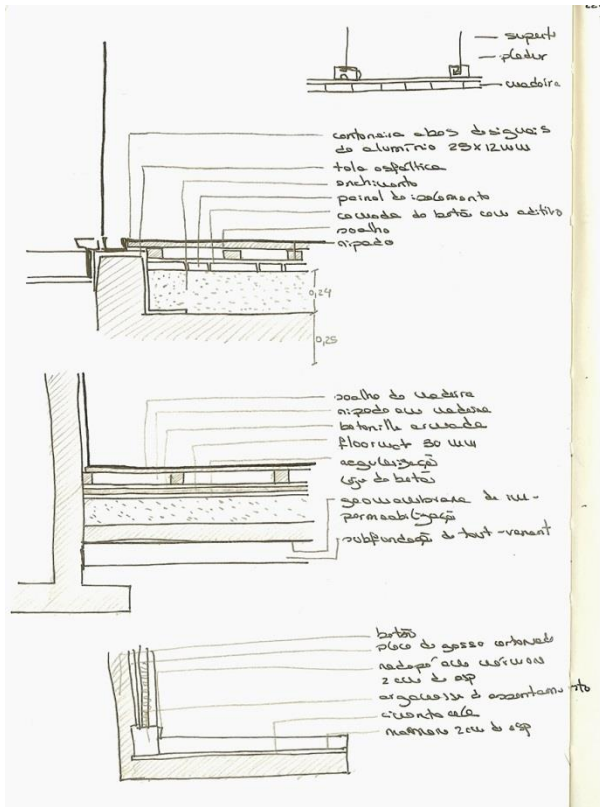 suporte
pladur
madeira
cantoneira abas desiguais
de alumínio 25x12mm
tela asfáltica
enchimento
painel de isolamento
camada de betão com aditivo
soalho
ripado
0,24
0,25
soalho de madeira
ripado em madeira
betonilha armada
floormat 30 mm
regularização
laje de betão
geomembrana de im-
permeabilização
subfundação de tout-venant
betão
placa de gesso cartonado
rodapé em mármore
2 cm de esp
argamassa d assentamento
cimento cola
mármore 2 cm de esp